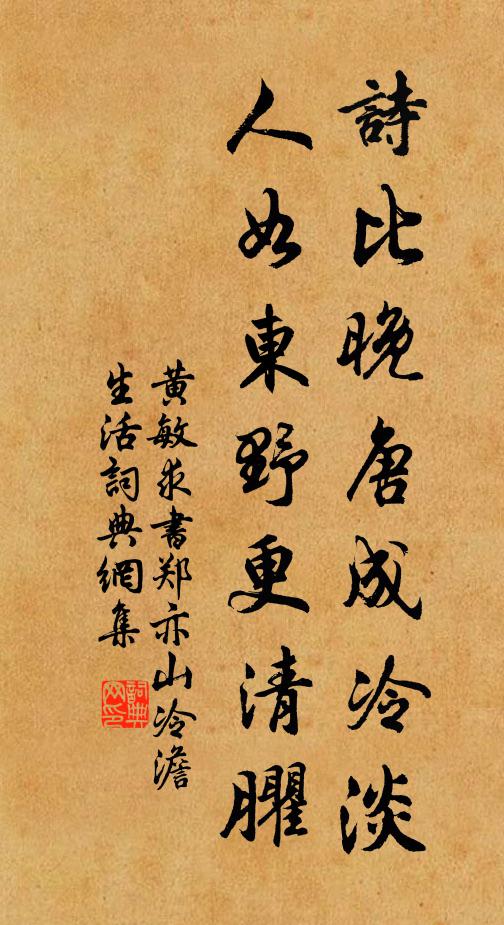 詩比晚唐成冷淡
人如東野更清臞
黄敏求書郑亦山冷澹
生活詞典網集
詞典
网印